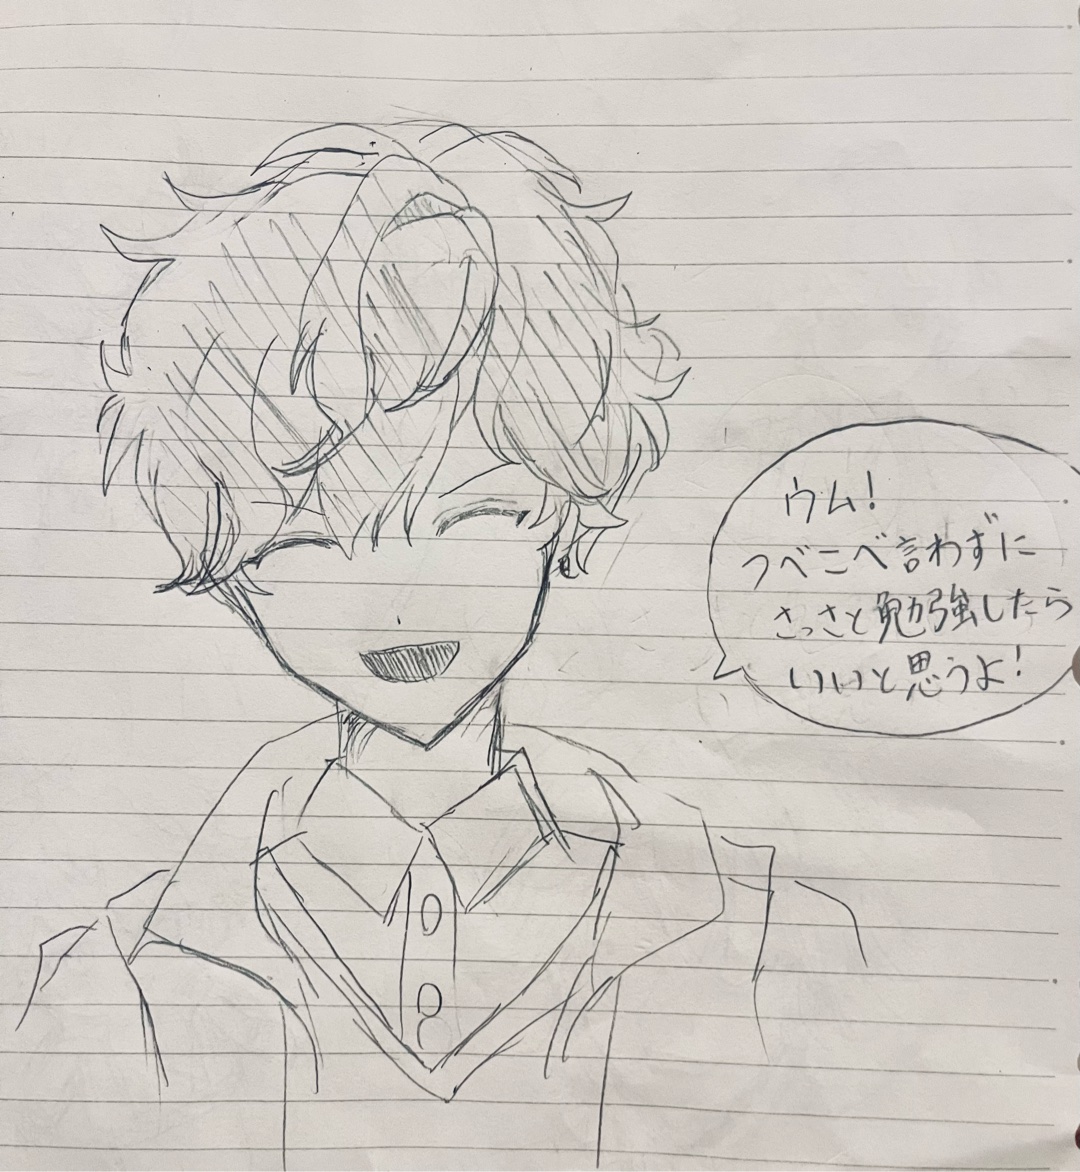 ウム!
つべこべ言わずに
さっさと勉強したら
いいと思うよ!